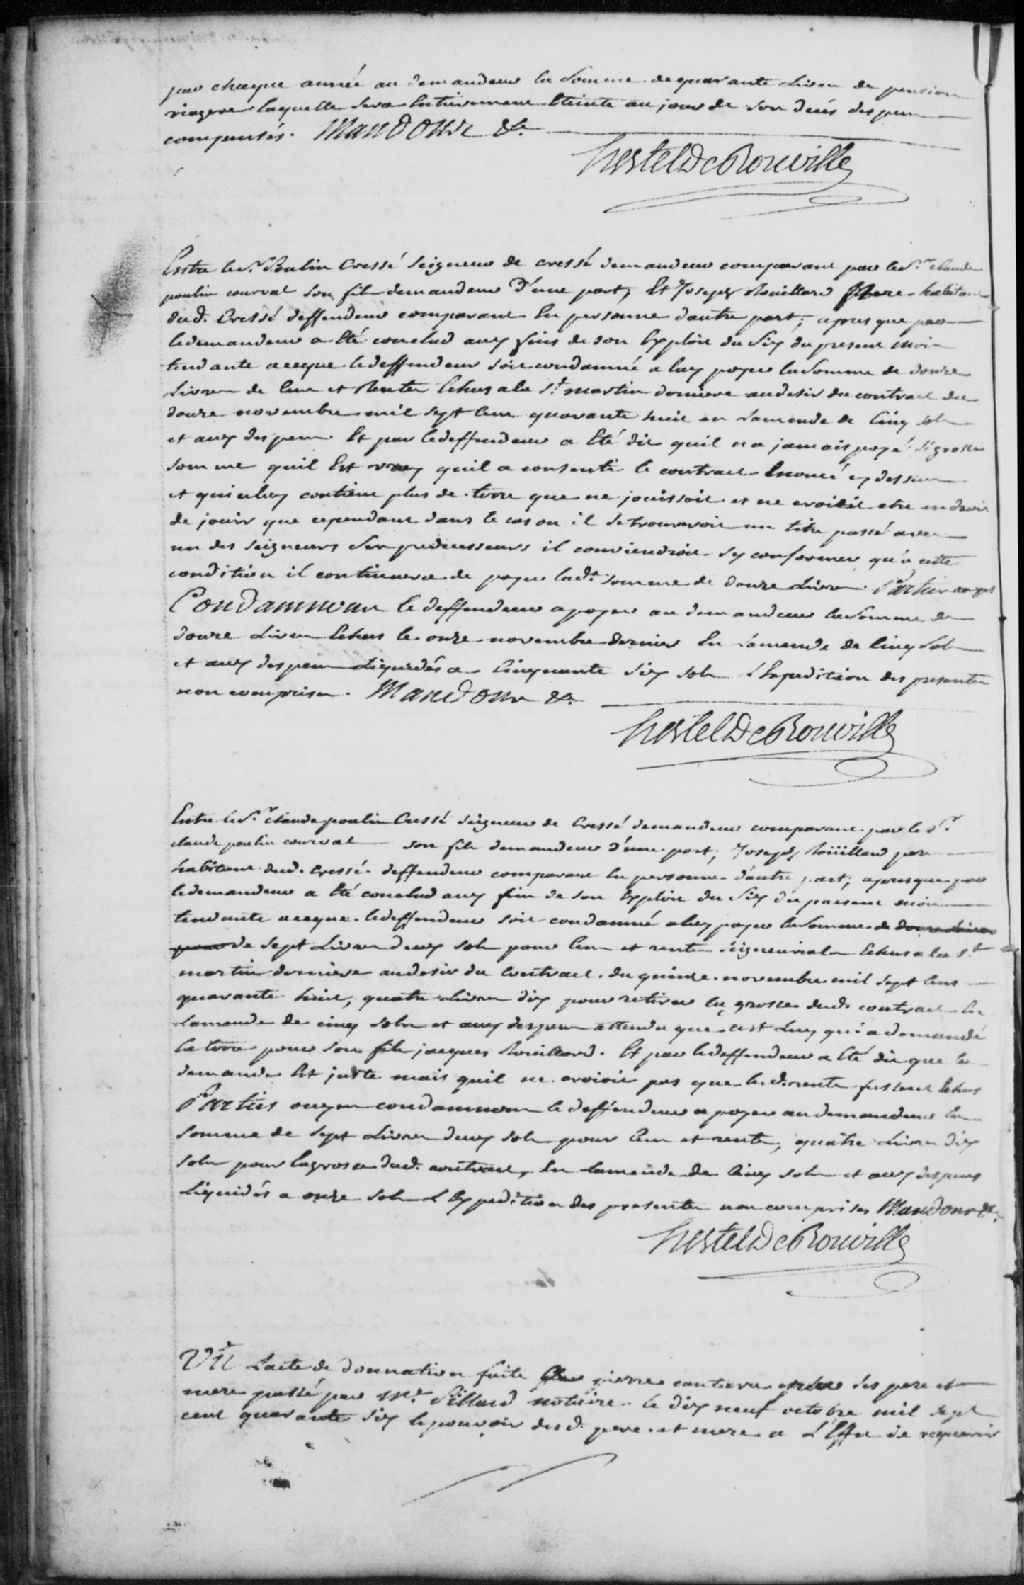 par chaque année au demandeur la somme de quarante Livres de pension
viagere laquelle sera Entierement Eteinte au jour de son decés despens
compensés. Mandons &a.
hertel De Rouville
Entre le Sr. Poulin Cressé Seigneur de cressé demandeur comparant par le Sr. claude
poulin courval son fils demandeur D'une part, Et Joseph Rouillard pere habitant
dud. Cressé deffendeur comparant En personne dautre part; apres que par
le demandeur a Eté conclud aux fins de son Exploit du Six du present mois
tendante aceque le deffendeur soit condamné a luy payer la somme de douze
Livres de Cens et Rentes Echus a la St. martin derniere au desir du contract du
douze novembre mil sept Cent quarante huit en Lamende de Cinq sols
et aux despens Et par le deffendeur a Eté dit quil n a jamais payé si grosse
somme quil Est vray quil a consenti le contract Enoncé cy dessus
et qui contient plus de terre que ne jouissoit et ne croioit etre en droit
de jouir que cependant dans le cas ou il se trouveroit un titre passé avec
un des seigneurs Ses predecesseurs il conviendroit sy conformer qu'a cette
condition il continuera de payer lad. somme de douze Livres Parties ouyes
Condamnons le deffendeur a payer au demandeur la Somme de
douze Livres Echus le onze novembre dernier En Lamende de Cinq Sols
et aux despens Liquidés a Cinquante Six sols L Expedition des presentes
non comprises. Mandons &a.
hertel De Rouville
Entre le Sr. claude poulin Cressé Seigneur de Cressé demandeur comparant par le Sr.
claude poulin courval son fils demandeur D'une part, Joseph Roüillard pere
habitant dud. Cressé deffendeur comparant En personne dautre part, apres que par
le demandeur a Eté conclud aux fins de son Exploit du Six du present mois
tendante aceque le deffendeur soit condamné a luy payer la Somme de douze Livres
de sept Livres deux sols pour Cens et rentes seigneuriales Echus a la St.
martin derniere au desir du Contract du quinze novembre mil sept Cens
quarante huit, quatre Livres dix pour retirer la grosse dud. contract En
Lamende de cinq sols et aux despens attendu que c'est Luy qui a demandé
la terre pour son fils jacques Rouillard. Et par le deffendeur a Eté dit que la
demande Est juste mais quil ne croioit pas que les rentes fussent Echus
Parties ouyes condamnons le deffendeur a payer au demandeur la
somme de sept Livres deux sols pour Cens et rentes, quatre Livres dix
sols pour la grosse dud. contract, En Lamende de Cinq sols et aux despens
Liquidés a onze sols L Expedition des presentes non comprises Mandons &a.
hertel De Rouville
Vû Lacte de donnation faite pierre ses pere et
mere passé par Me. Pillard notaire le dix neuf octobre mil sept
cent quarante six le pouvoir des d. pere et mere a L'Effet de requerir